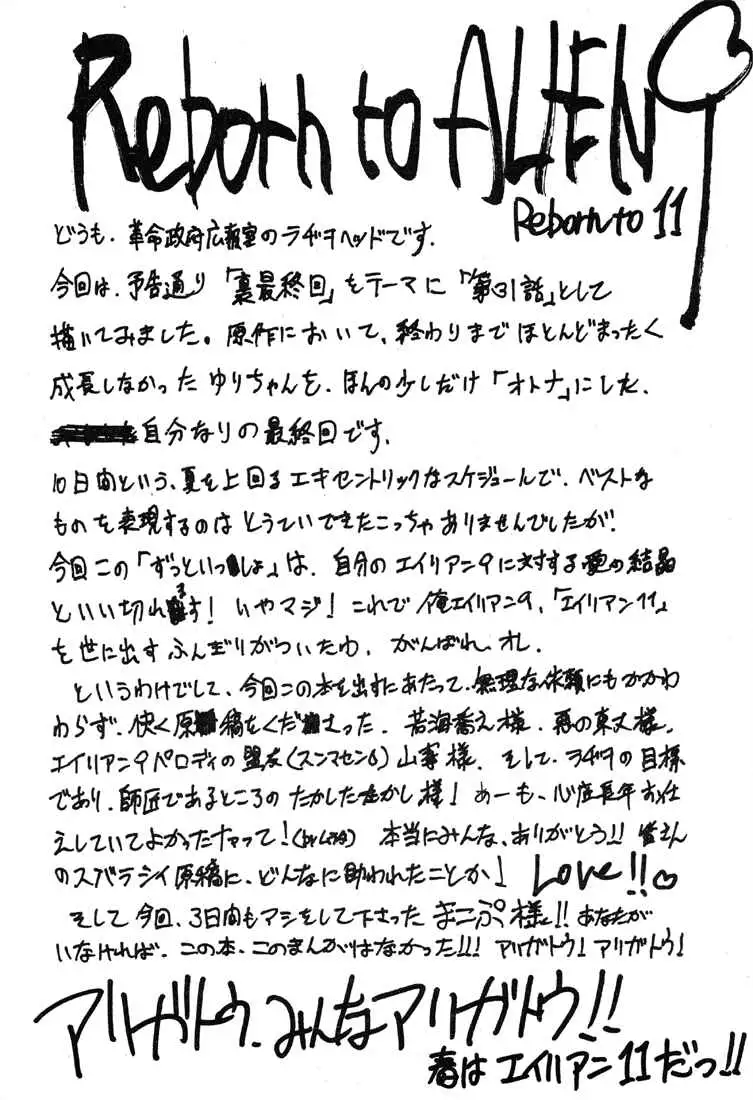 Reborn to ALIEN 9
Reborn to 11
どうも、革命政府広報室のラヂヲヘッドです。
今回は、予告通り「裏最終回」をテーマに「第31話」として
描いてみました。原作において、終わりまでほとんどまったく
成長しなかったゆりちゃんを、ほんの少しだけ「オトナ」にした、
自分なりの最終回です。
10日間という、夏を上回るエキセントリックなスケジュールで、ベストな
ものを表現するのはとうていできたこっちゃありませんでしたが、
今回この「ずっといっしょ」は、自分のエイリアン9に対する愛の結晶
といい切れます!いやマジ!これで俺エイリアン9、「エイリアン11」
を世に出すふんぎりがついたわ。がんばれ、オレ。
というわけでして、今回この本を出すにあたって、無理な依頼にもかかわ
わらず、快く原稿をくださった、若海喬え様、再の東丈様、
エイリアン9パロディの盟友(スンマセン6)山事様、そして、ラヂヲの目標
であり、師匠であるところのたかしたたかし様!あーも、心底長年お仕
えしていてよかったナァって!
本当にみんな、ありがとう!!皆さん
のスバラシイ原稿に、どんなに助われたことか!Love!!♡
そして今回、3日間もアシをして下さったまこぷ様!!あなたが
いなければ、この本、このまんがはなかった!!!アリガトウ!アリガトウ!
アリガトウ、みんなアリガトウ!!
春はエイリアン11だっ!!